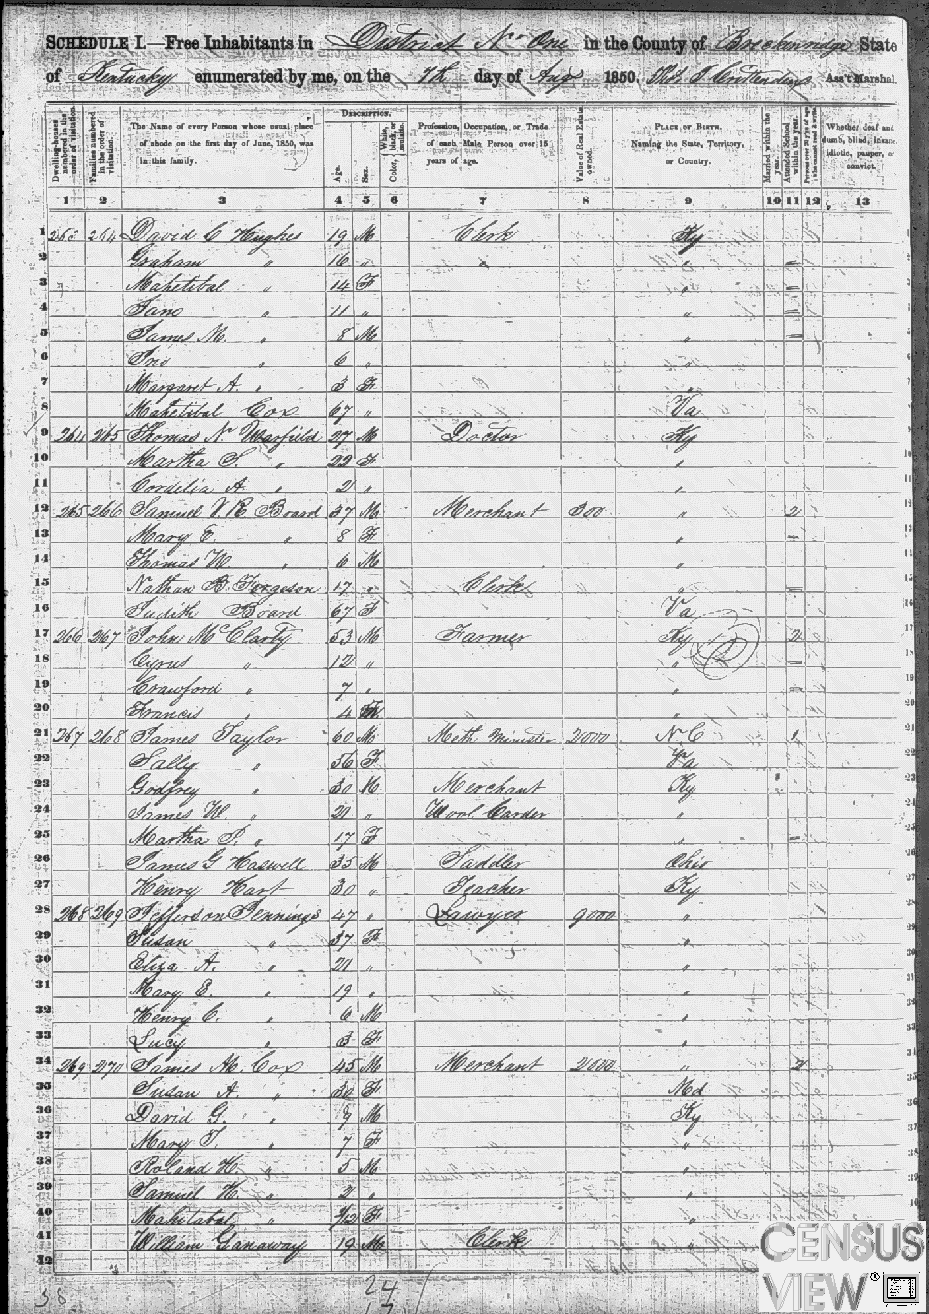 SCHEDULE I.—Free Inhabitants in District No One in the County of Breckenridge State
of Kentucky enumerated by me, on the 7th day of Aug 1850. Ass't Marshal
Dwelling-houses numbered in the order of visitation.
Families numbered in the order of visitation.
The Name of every Person whose usual place of abode on the first day of June, 1850, was in this family.
DESCRIPTION.
Age.
Sex.
Color, White, black, or mulatto.
Profession, Occupation, or Trade of each Male Person over 15 years of age.
Value of Real Estate owned.
PLACE OF BIRTH. Naming the State, Territory, or Country.
Married within the year.
Attended School within the year.
Persons over 20 y'rs of age who cannot read & write.
Whether deaf and dumb, blind, insane, idiotic, pauper, or convict.
1 2 3 4 5 6 7 8 9 10 11 12 13
1 263 264 David C Hughes 19 M Clerk Ky
2 Graham " 16 " " "
3 Mahetibal " 14 F "
4 Jane " 11 " "
5 James M. " 8 M "
6 " 6 " "
7 Margaret A. " 3 F "
8 Mahetibal Cox 67 " Va
9 264 265 Thomas N Warfield 27 M Doctor Ky
10 Martha S. " 22 F "
11 Cordelia A " 2 " "
12 265 266 Samuel V. R. Board 37 M Merchant 300 " 2
13 Mary E. " 8 F "
14 Thomas W. " 6 M "
15 Nathan B Forgeson 17 " Clerk "
16 Judith Board 67 F Va
17 266 267 John McClarty 53 M Farmer Ky 2
18 Cyrus " 12 " "
19 Crawford " 7 " "
20 Francis " 4 "
21 267 268 James Taylor 60 M Meth. Minister 2000 N C 1
22 Sally " 56 F Va
23 Godfrey " 30 M Merchant Ky
24 James W. " 21 " Wool Carder "
25 Martha P. " 17 F "
26 James G Haswell 35 M Saddler Ohio
27 Henry Hart 30 " Teacher Ky
28 268 269 Jefferson Jennings 47 " Lawyer 9000 "
29 Susan " 37 F "
30 Eliza A. " 21 " "
31 Mary E. " 19 " "
32 Henry C. " 6 M "
33 Lucy " 3 F "
34 269 270 James M. Cox 45 M Merchant 2600 " 2
35 Susan A. " 30 F Md
36 David G. " 9 M Ky
37 Mary T. " 7 F "
38 Roland H. " 5 M "
39 Samuel H. " 2 " "
40 Mahetabal " F "
41 William Ganaway 19 M Clerk "
42
24
17
CENSUS
VIEW ®